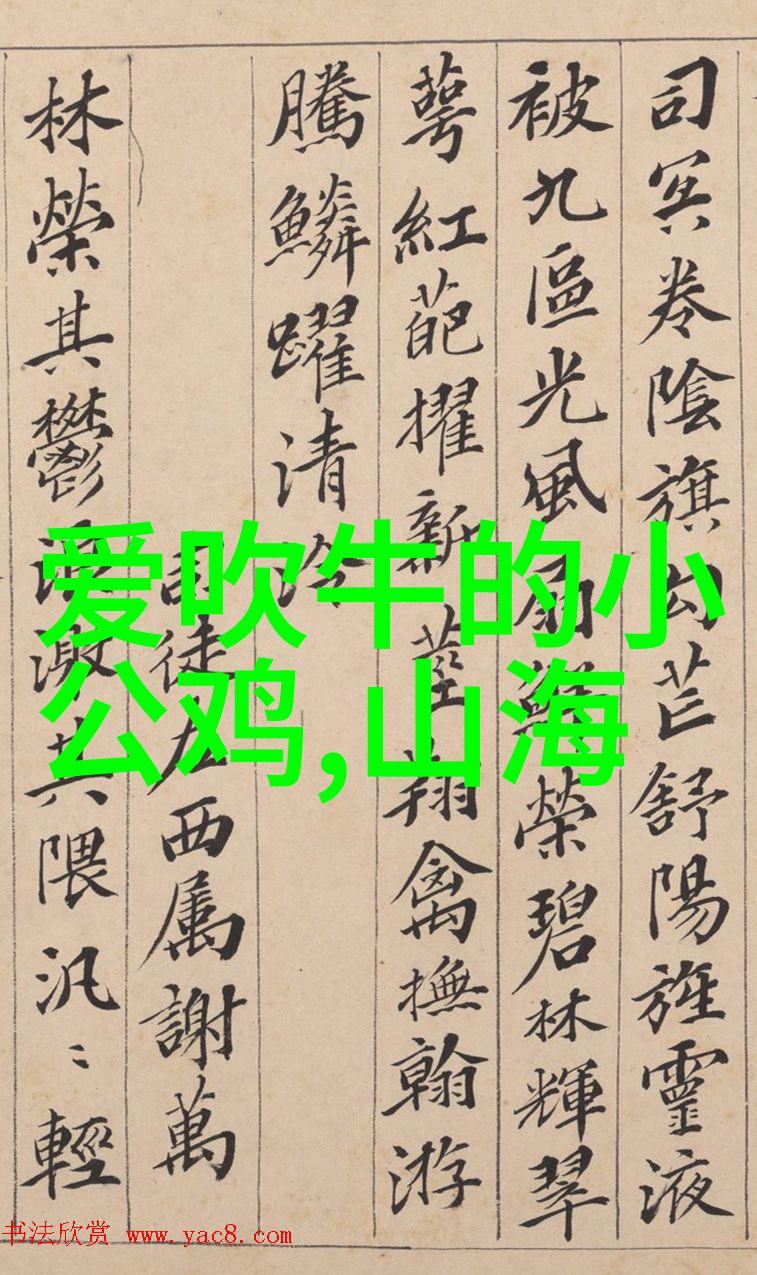 司冥卷陰旗勾芒舒陽旌靈液
被九區光風扇鮮榮碧林輝翠
萼紅葩擢新莖翔禽撫翰游
騰鱗躍清泠
司徒左西属謝萬
林榮其鬱浪激其隈汎〻輕
爱吹牛的小
公鸡,山海
书法欣赏 www.yac8.com